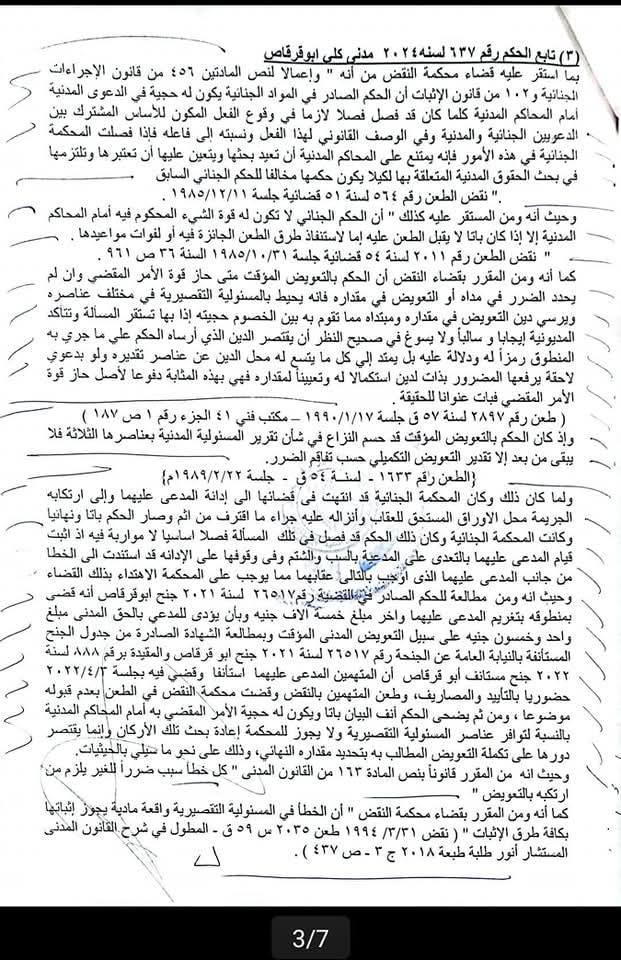 (٣) تابع الحكم رقم ٦٣٧ لسنه ٢٠٢٤ مدني كلي ابوقرقاص
بما استقر عليه قضاء محكمة النقض من أنه " وإعمالا لنص المادتين ٤٥٦ من قانون الإجراءات
الجنائية و١٠٢ من قانون الإثبات أن الحكم الصادر في المواد الجنائية يكون له حجية في الدعوى المدنية
أمام المحاكم المدنية كلما كان قد فصل فصلا لازما في وقوع الفعل المكون للأساس المشترك بين
الدعويين الجنائية والمدنية وفي الوصف القانوني لهذا الفعل ونسبته إلى فاعله فإذا فصلت المحكمة
الجنائية في هذه الأمور فإنه يمتنع على المحاكم المدنية أن تعيد بحثها ويتعين عليها أن تعتبرها وتلتزمها
في بحث الحقوق المدنية المتعلقة بها لكيلا يكون حكمها مخالفا للحكم الجنائي السابق
." نقض الطعن رقم ٥٦٤ لسنة ٥١ قضائية جلسة ١٩٨٥/١٢/١١ .
وحيث أنه ومن المستقر عليه كذلك " أن الحكم الجنائي لا تكون له قوة الشيء المحكوم فيه أمام المحاكم
المدنية إلا إذا كان باتا لا يقبل الطعن عليه إما لاستنفاذ طرق الطعن الجائزة فيه أو لفوات مواعيدها .
" نقض الطعن رقم ٢٠١١ لسنة ٥٤ قضائية جلسة ١٩٨٥/١٠/٣١ السنة ٣٦ ص ٩٦١ .
كما أنه ومن المقرر بقضاء النقض أن الحكم بالتعويض المؤقت متى حاز قوة الأمر المقضي وان لم
يحدد الضرر في مداه أو التعويض في مقداره فانه يحيط بالمسئولية التقصيرية في مختلف عناصره
ويرسي دين التعويض في مقداره ومبتداه مما تقوم به بين الخصوم حجيته إذا بها تستقر المسألة وتتأكد
المديونية إيجابا و سالباً ولا يسوغ في صحيح النظر أن يقتصر الدين الذي أرساه الحكم علي ما جري به
المنطوق رمزاً له ودلالة عليه بل يمتد إلي كل ما يتسع له محل الدين عن عناصر تقديره ولو بدعوي
لاحقة يرفعها المضرور بذات لدين استكمالا له وتعييناً لمقداره فهي بهذه المثابة دفوعا لأصل حاز قوة
الأمر المقضي فبات عنوانا للحقيقة .
( طعن رقم ٢٨٩٧ لسنة ٥٧ ق جلسة ١٩٩٠/١/١٧ – مكتب فني ٤١ الجزء رقم ١ ص ١٨٧ )
وإذ كان الحكم بالتعويض المؤقت قد حسم النزاع في شأن تقرير المسئولية المدنية بعناصرها الثلاثة فلا
يبقى من بعد إلا تقدير التعويض التكميلي حسب تفاقم الضرر.
{الطعن رقم ١٦٣٣ - لسنـة ٥٤ ق - جلسة ١٩٨٩/٢/٢٢م}
ولما كان ذلك وكان المحكمة الجنائية قد انتهت في قضائها الى إدانة المدعى عليهما وإلى ارتكابه
الجريمة محل الاوراق المستحق للعقاب وأنزاله عليه جراء ما اقترف من اثم وصار الحكم باتا ونهائيا
وكانت المحكمة الجنائية وكان ذلك الحكم قد فصل في تلك المسألة فصلا اساسيا لا مواربة فيه اذ اثبت
قيام المدعى عليهما بالتعدى على المدعية بالسب والشتم وفى وقوفها على الإدانه قد استندت الى الخطا
من جانب المدعى عليهما الذى أوجب بالتالى عقابهما مما يوجب على المحكمة الاهتداء بذلك القضاء
وحيث انه ومن مطالعة للحكم الصادر في القضية رقم ٢٦٥١٧ لسنة ٢٠٢١ جنح ابوقرقاص أنه قضى
بمنطوقه بتغريم المدعى عليهما واخر مبلغ خمسة الاف جنيه وبأن يؤدى للمدعي بالحق المدنى مبلغ
واحد وخمسون جنيه على سبيل التعويض المدنى المؤقت وبمطالعة الشهادة الصادرة من جدول الجنح
المستأنفة بالنيابة العامة عن الجنحة رقم ٢٦٥١٧ لسنة ٢٠٢١ جنح ابو قرقاص والمقيدة برقم ٨٨٨ لسنة
٢٠٢٢ جنح مستانف أبو قرقاص أن المتهمين المدعى عليهما استأنفا وقضي فيه بجلسة ٢٠٢٢/٤/٣
حضوريا بالتأييد والمصاريف، وطعن المتهمين بالنقض وقضت محكمة النقض في الطعن بعدم قبوله
موضوعا ، ومن ثم يضحى الحكم آنف البيان باتا ويكون له حجية الأمر المقضي به أمام المحاكم المدنية
بالنسبة لتوافر عناصر المسئولية التقصيرية ولا يجوز للمحكمة إعادة بحث تلك الأركان وإنما يقتصر
دورها على تكملة التعويض المطالب به بتحديد مقداره النهائي، وذلك على نحو ما سيلي بالحيثيات.
وحيث انه من المقرر قانوناً بنص المادة ١٦٣ من القانون المدنى " كل خطأ سبب ضرراً للغير يلزم من
ارتكبه بالتعويض "
كما أنه ومن المقرر بقضاء محكمة النقض " أن الخطأ في المسئولية التقصيرية واقعة مادية يجوز إثباتها
بكافة طرق الإثبات " ( نقض ٣١/٣/ ١٩٩٤ طعن ٢٠٣٥ س ٥٩ ق - المطول في شرح القانون المدنى
المستشار أنور طلبة طبعة ٢٠١٨ ج ٣ - ص ٤٣٧ ) .
3/7